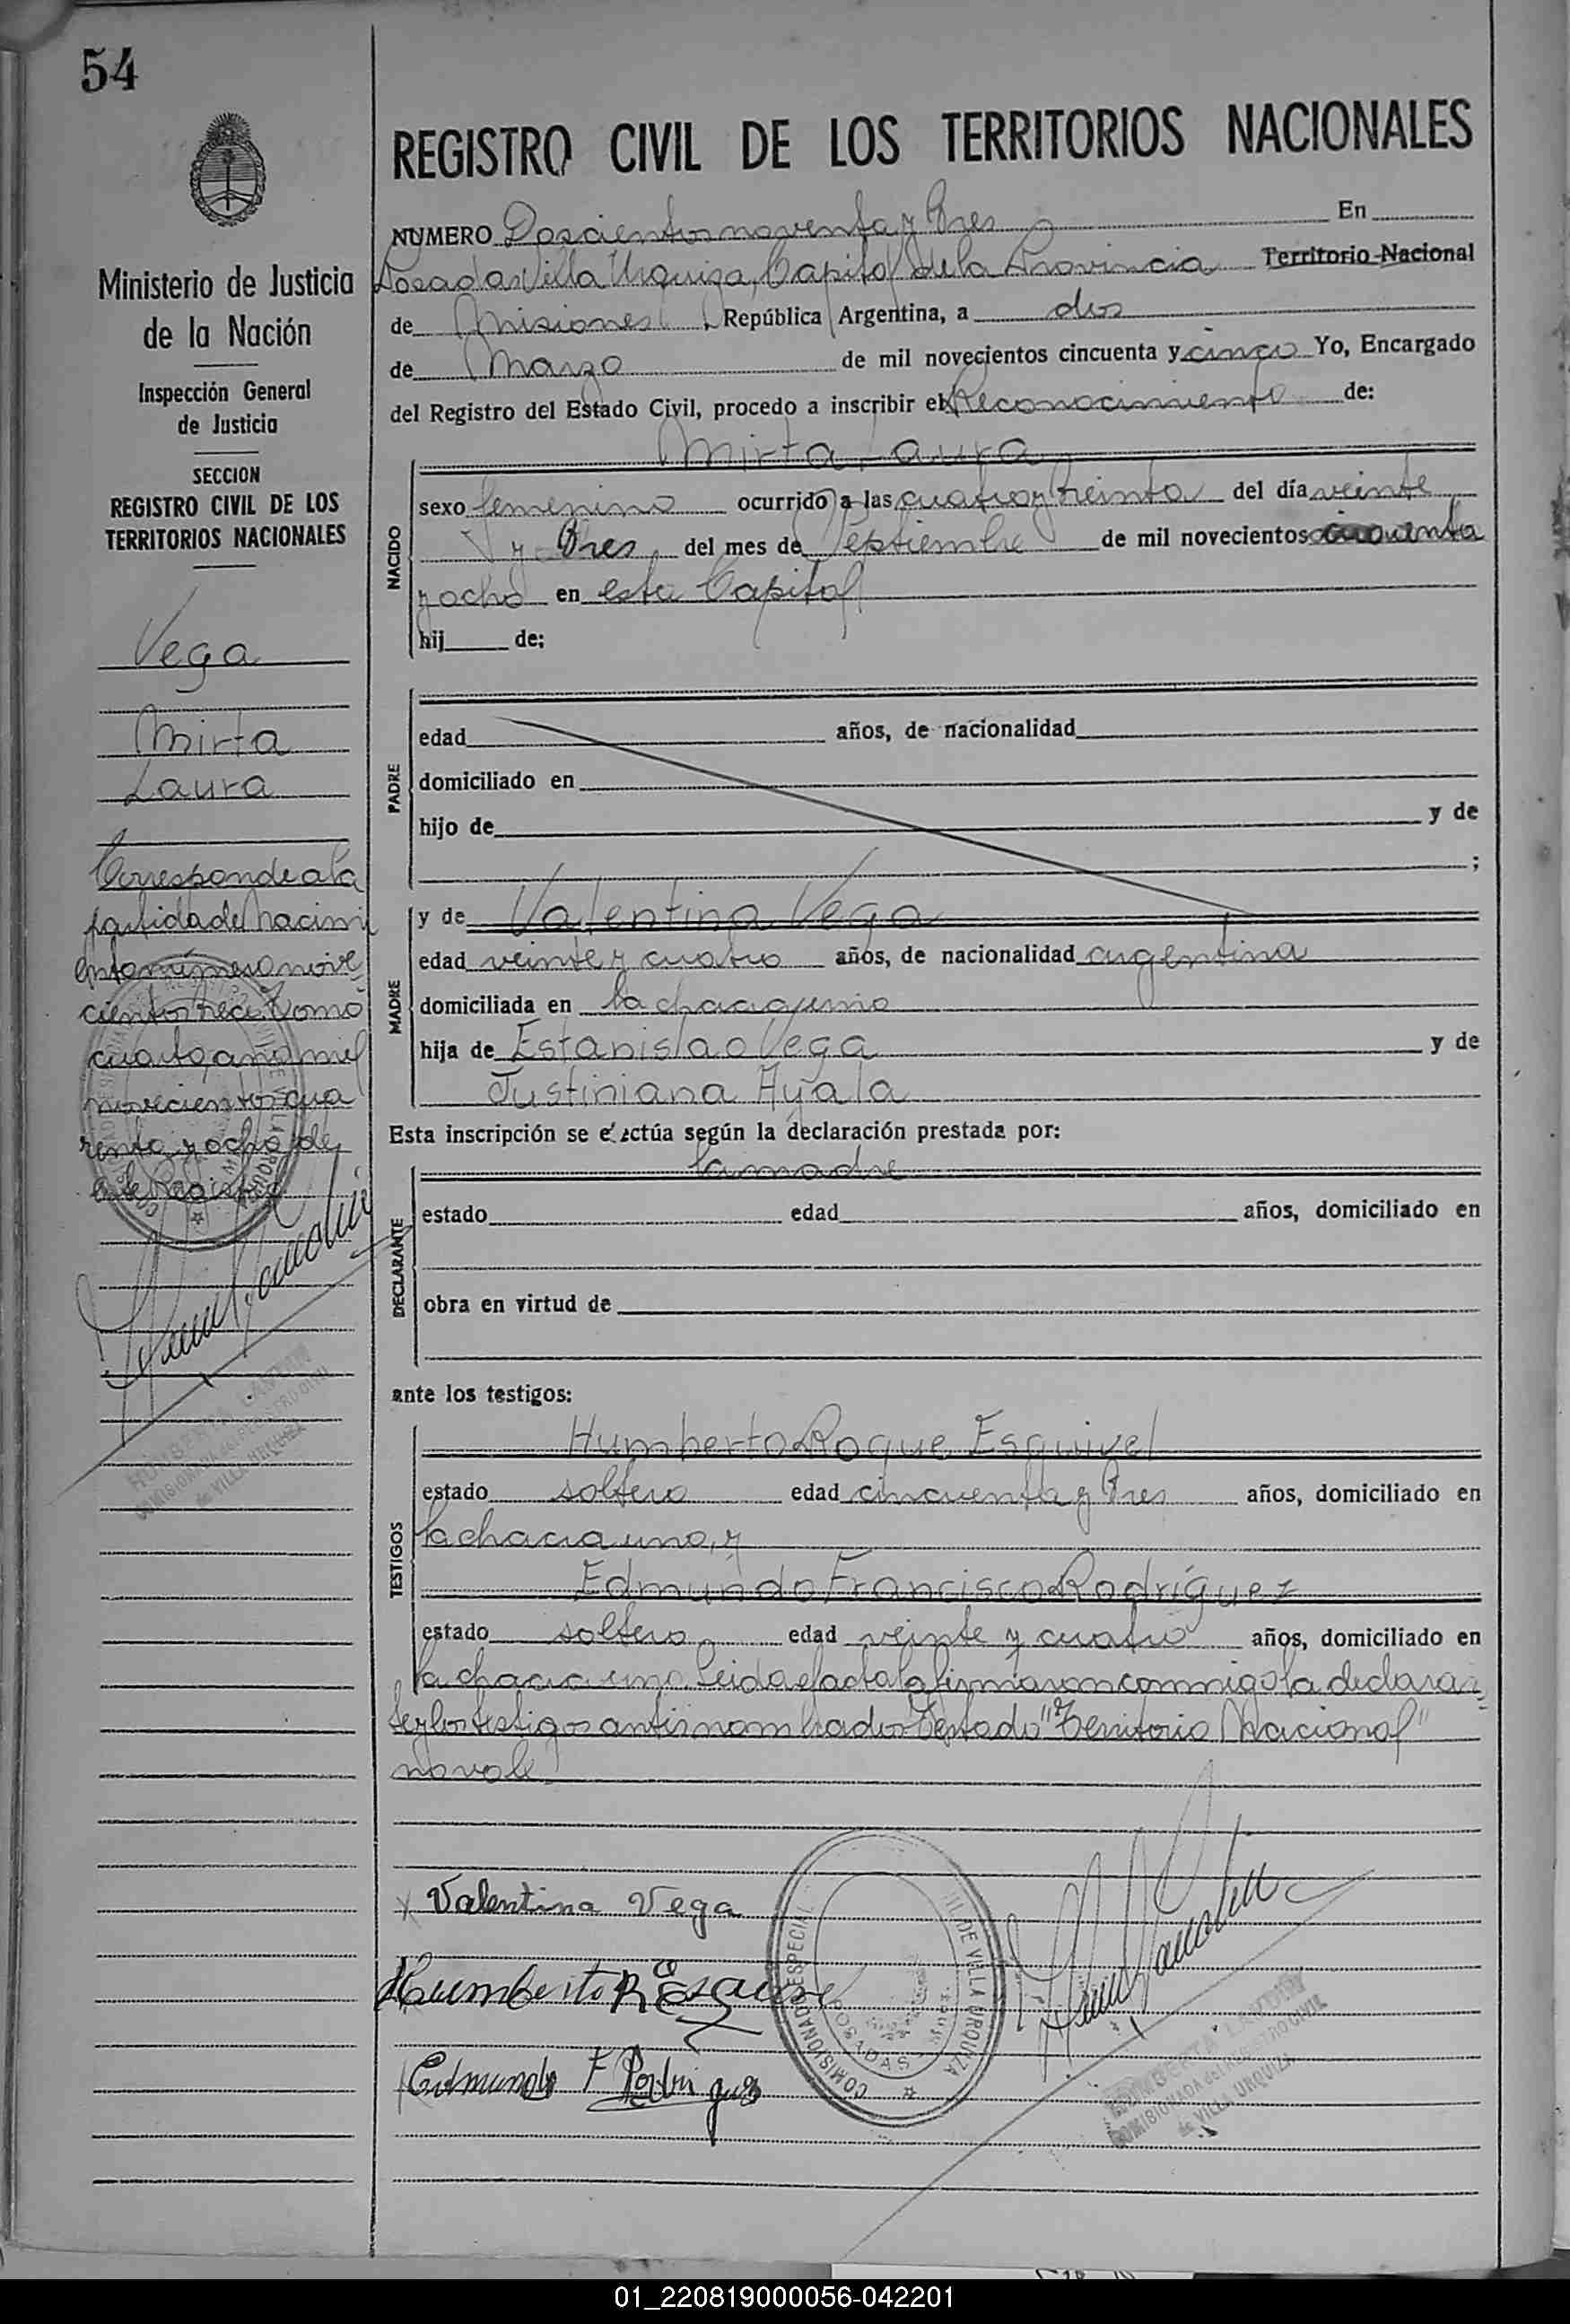 54
Ministerio de Justicia
de la Nación
Inspección General
de Justicia
SECCION
REGISTRO CIVIL DE LOS
TERRITORIOS NACIONALES
Vega
Mirta
Laura
Corresponde a la
partida de Nacimi
ento número nove
cientos trece Tomo
cuarto, año mil
novecientos cua
renta y ocho de
este Registro
REGISTRO CIVIL DE LOS TERRITORIOS NACIONALES
NUMERO Doscientos noventa y Tres En
Posadas Villa Urquiza, Capital de la Provincia Territorio Nacional
de Misiones, República Argentina, a dos
de Marzo de mil novecientos cincuenta y cinco Yo, Encargado
del Registro del Estado Civil, procedo a inscribir el Reconocimiento de:
Mirta Laura
NACIDO
sexo femenino ocurrido a las cuatro y treinta del día veinte
y Tres del mes de Septiembre de mil novecientos
y ocho en esta Capital
hij de;
PADRE
edad años, de nacionalidad
domiciliado en
hijo de y de
;
MADRE
y de Valentina Vega
edad veinte y cuatro años, de nacionalidad argentina
domiciliada en la chacra uno
hija de Estanislao Vega y de
Justiniana Ayala
Esta inscripción se efectúa según la declaración prestada por:
DECLARANTE
la madre
estado edad años, domiciliado en
obra en virtud de
ante los testigos:
TESTIGOS
Humberto Roque Esquivel
estado soltero edad cincuenta y Tres años, domiciliado en
la chacra uno, y
Edmundo Francisco Rodríguez
estado soltero edad veinte y cuatro años, domiciliado en
la chacra uno. Leida el acta la firmaron conmigo la declaran
te y los testigos antes nombrados Testado "Territorio Nacional"
no vale
x Valentina Vega
Humberto R Esquivel
Edmundo F Rodriguez
COMISIONADO ESPECIAL
DE VILLA URQUIZA
POSADAS
COMISIONADA del REGISTRO CIVIL
de VILLA URQUIZA
01_220819000056-042201